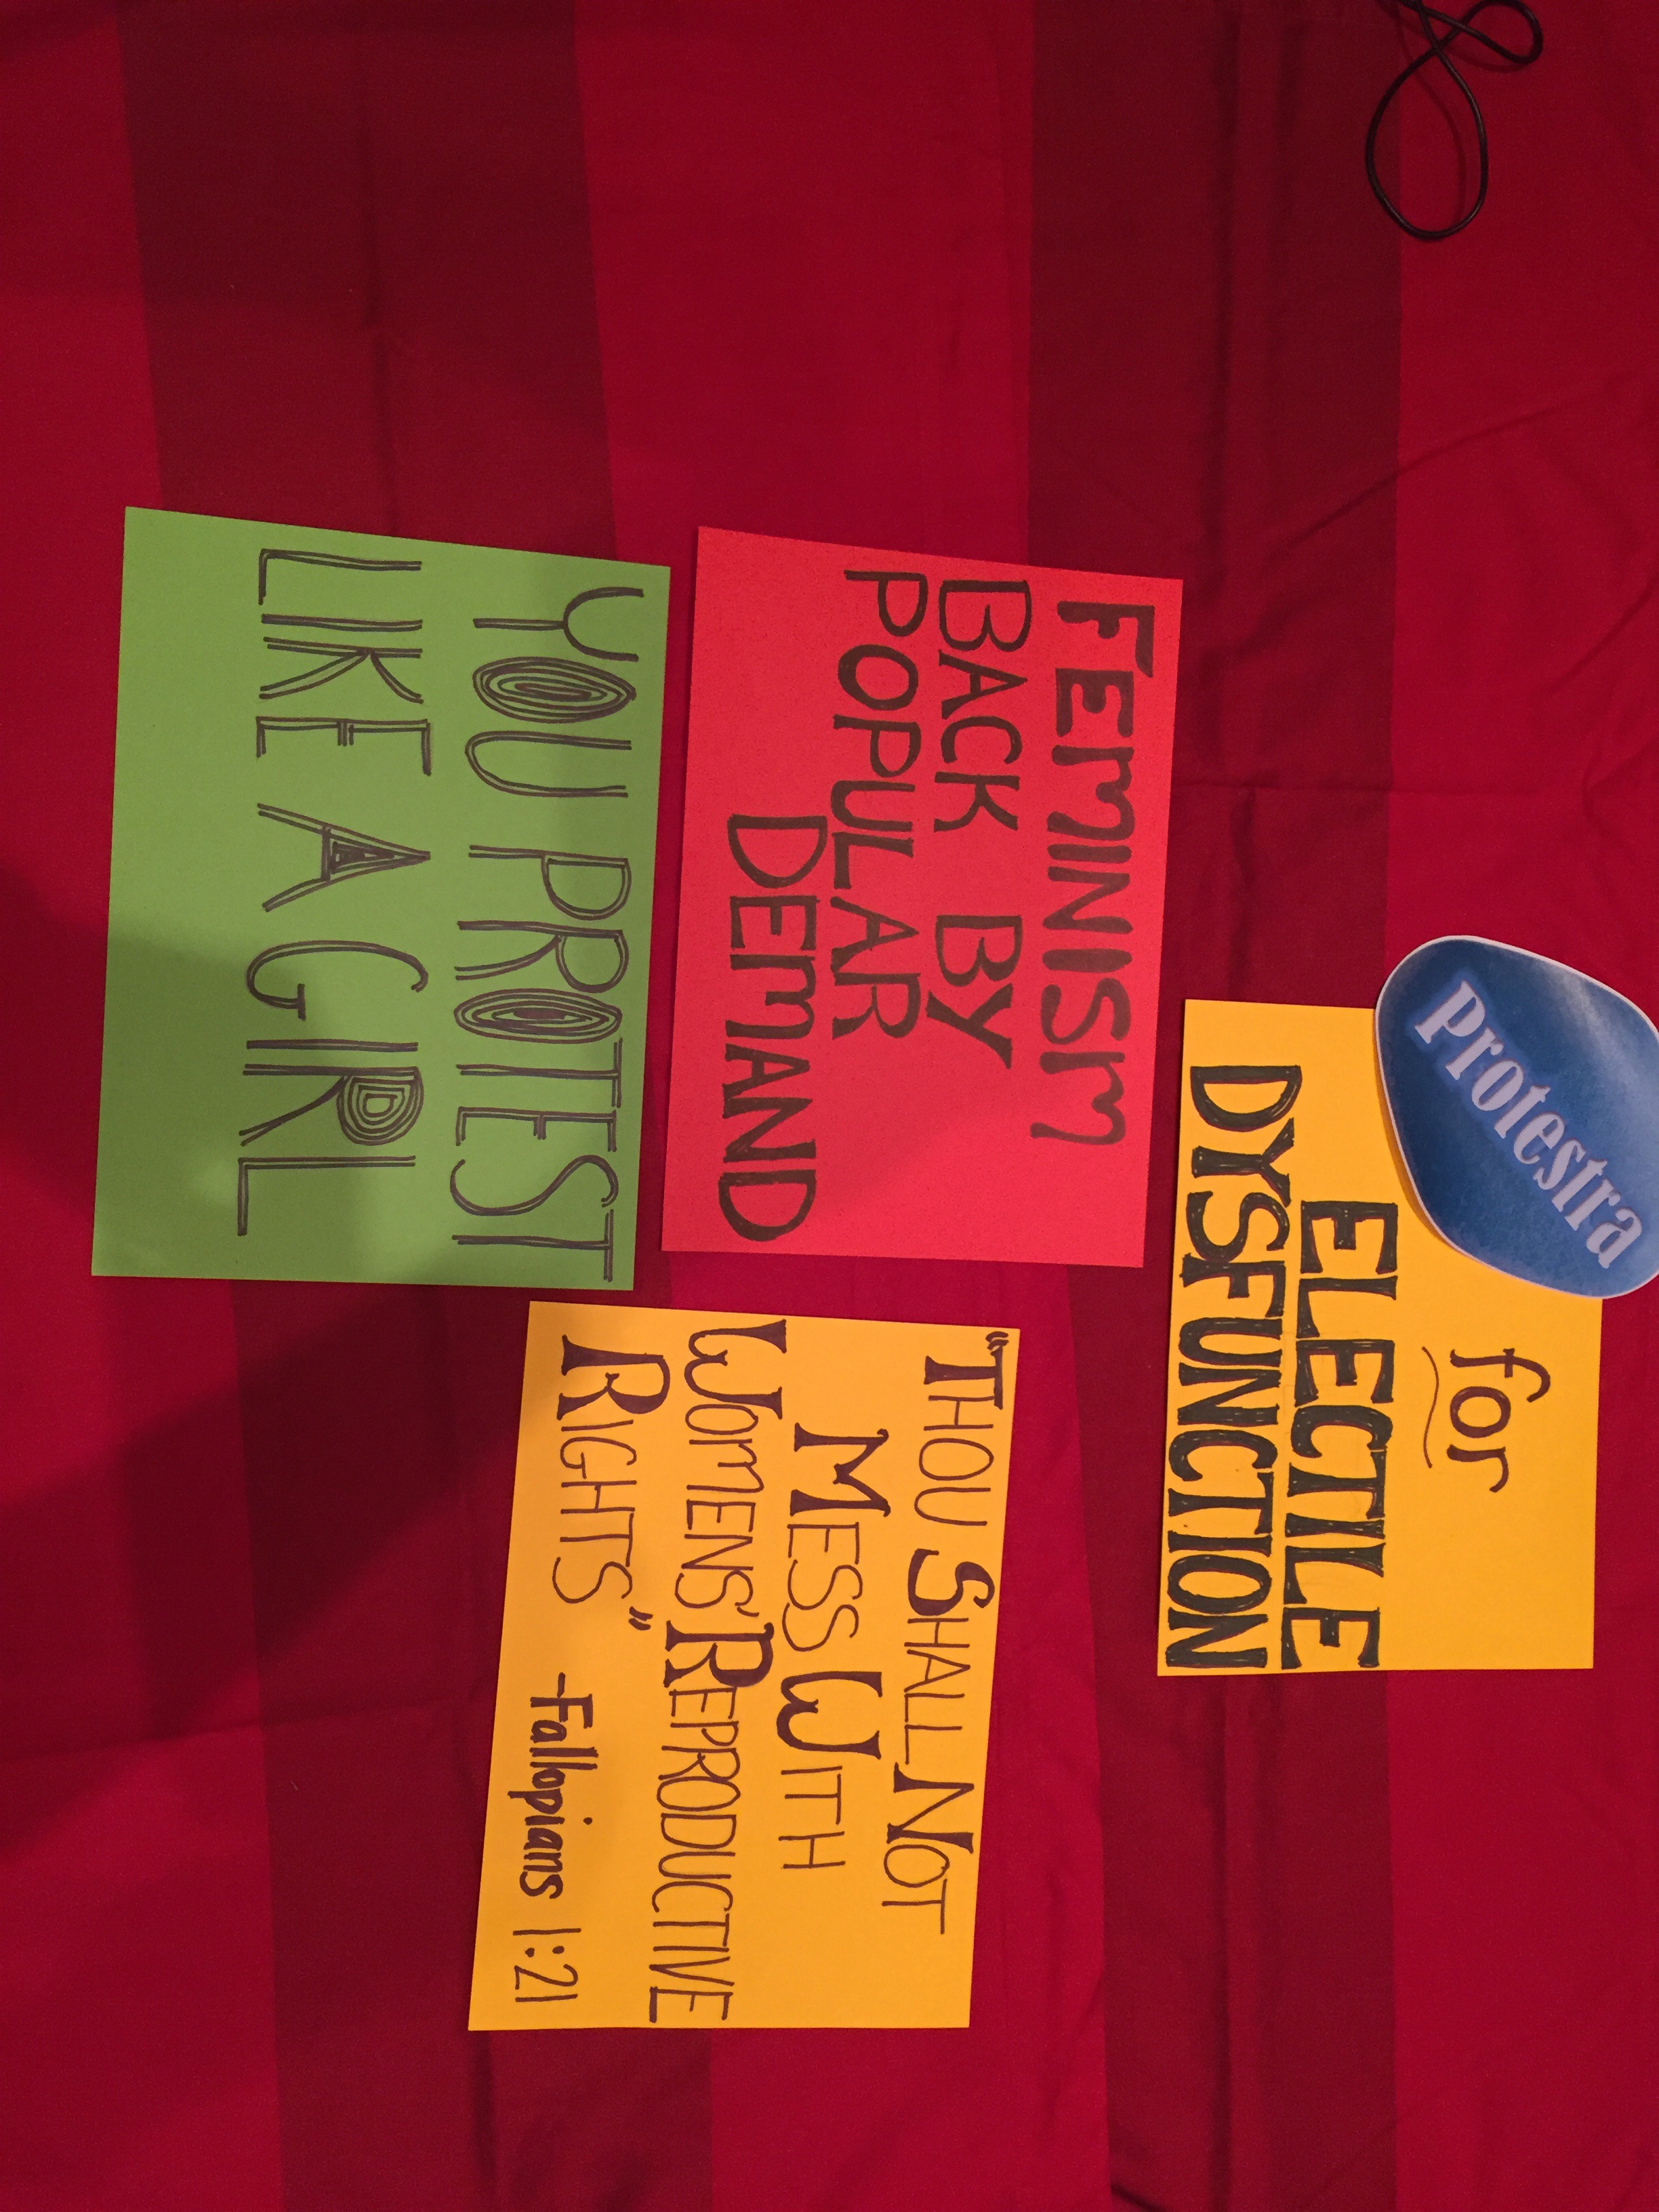 Protestra
for
ELECTILE
DYSFUNCTION
FEMINISM
BACK BY
POPULAR
DEMAND
YOU PROTEST
LIKE A GIRL
"THOU SHALL NOT
MESS WITH
WOMENS' REPRODUCTIVE
RIGHTS"
-Fallopians 1:21